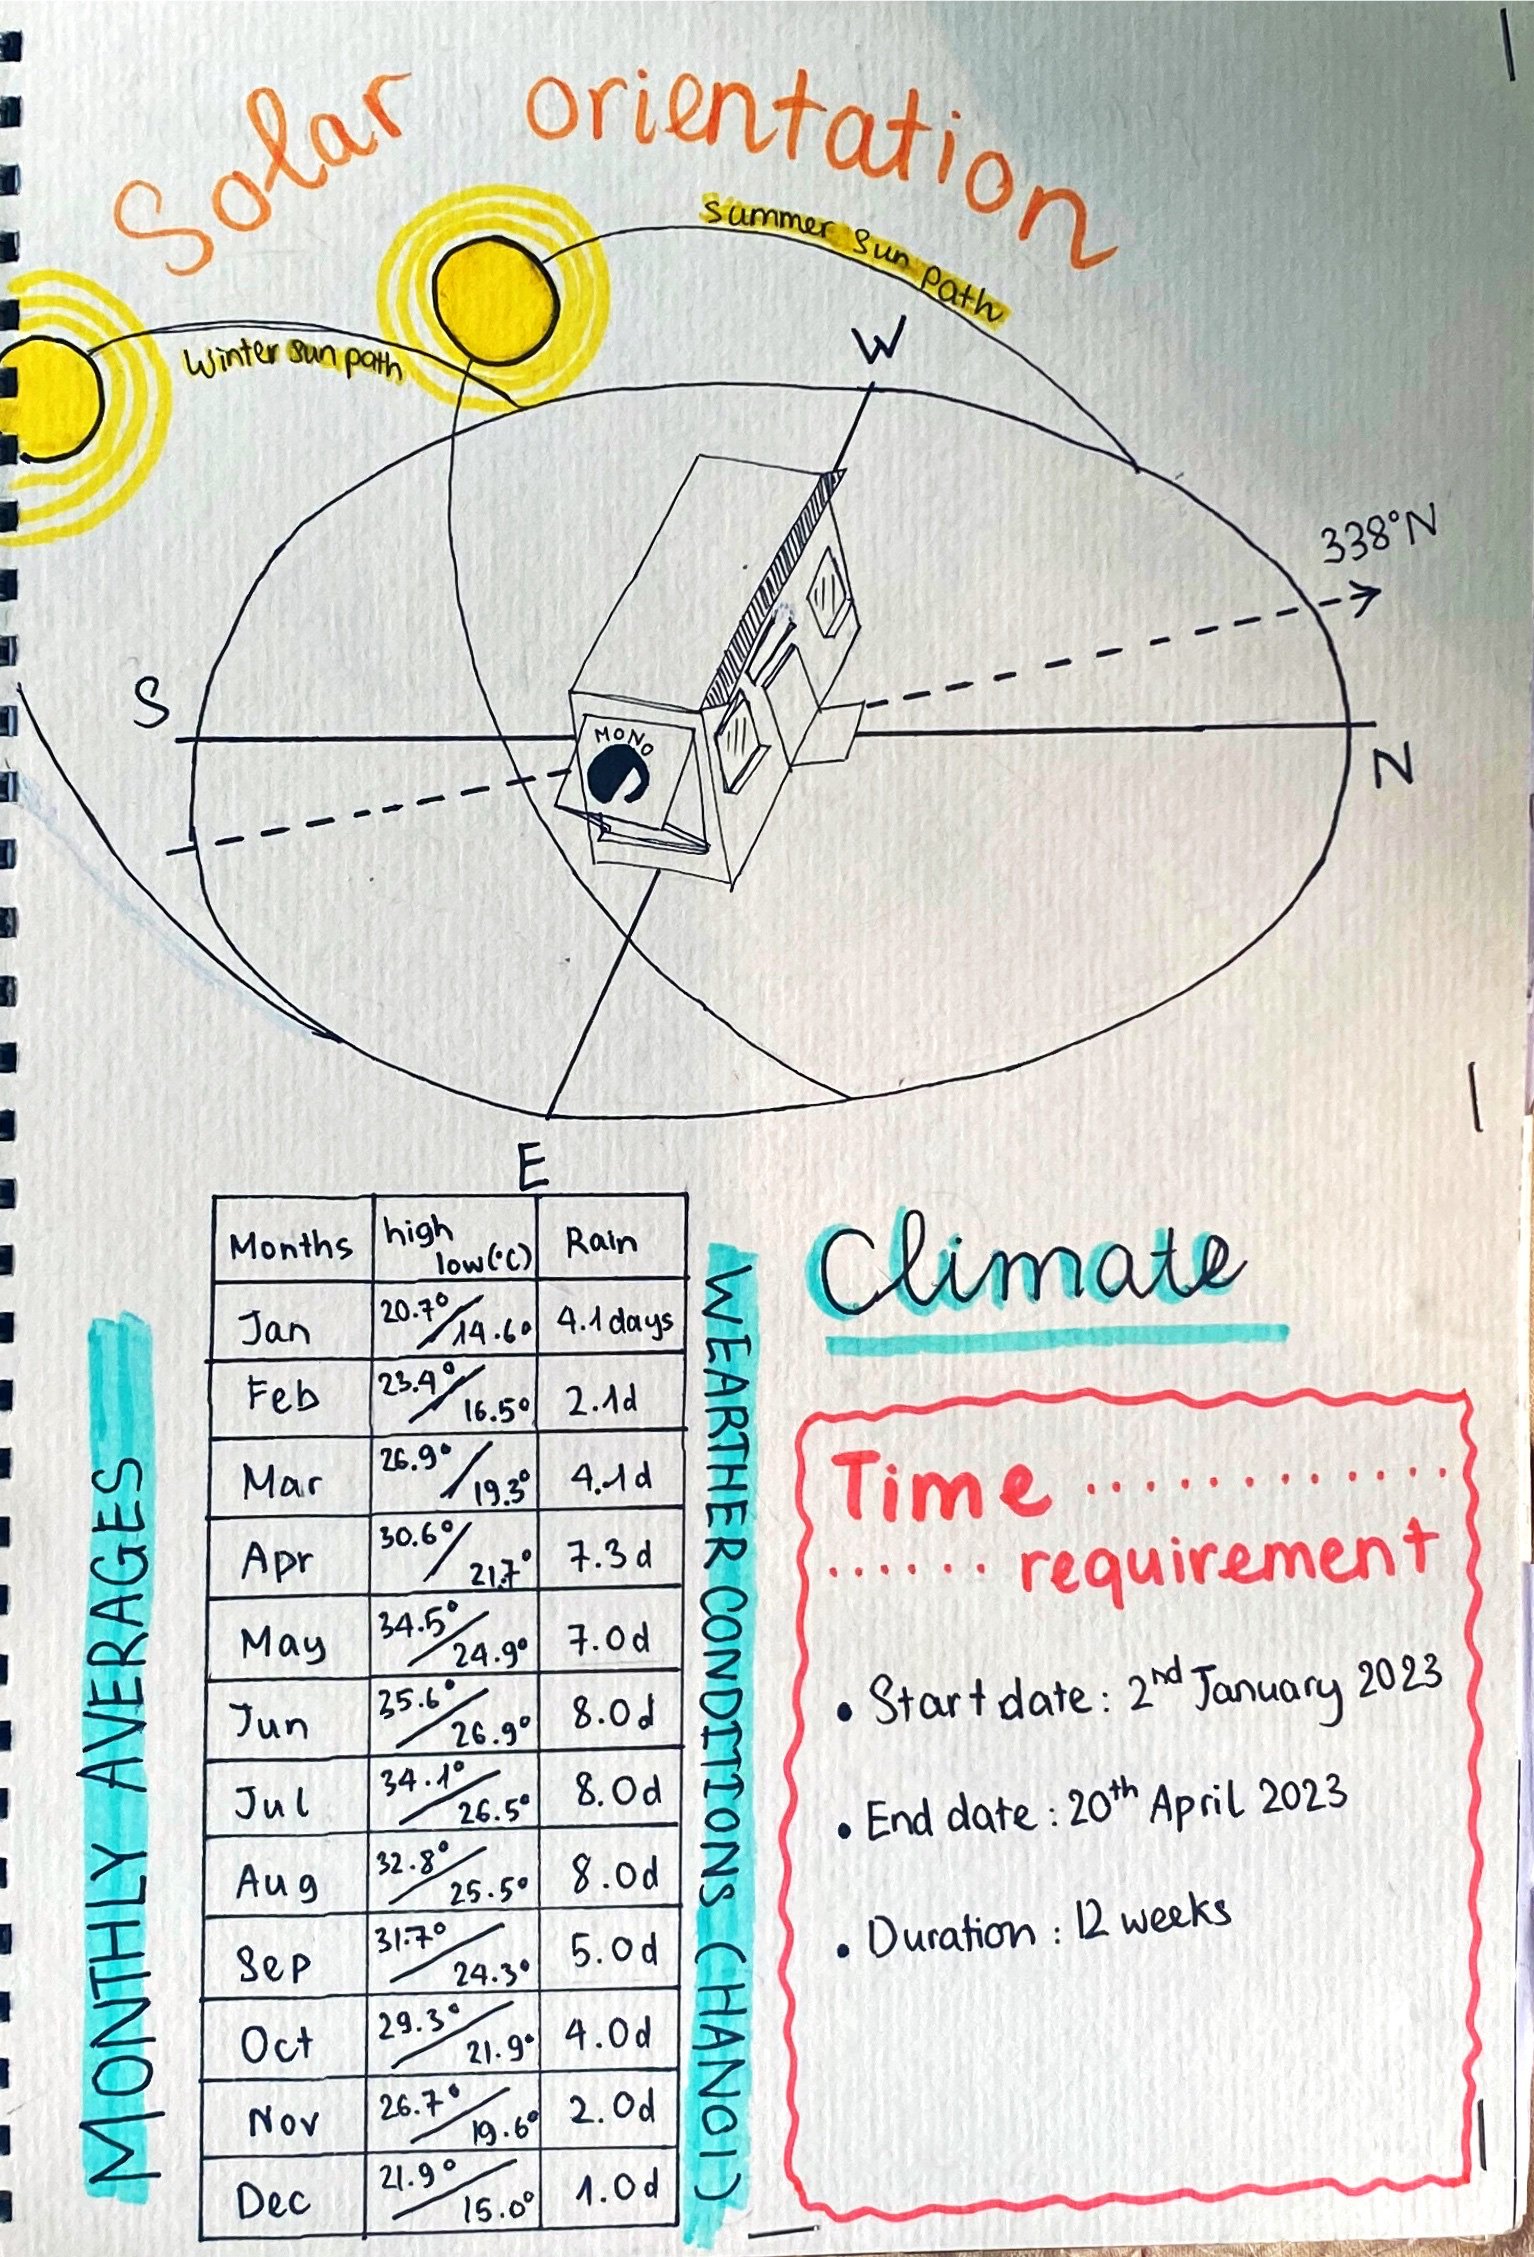 Solar orientation
Summer sun path
Winter sun path
W
338°N
S
MONO
N
E
MONTHLY AVERAGES
Months high low(°C) Rain
Jan 20.7° / 14.6° 4.1 days
Feb 23.4° / 16.5° 2.1d
Mar 26.9° / 19.3° 4.1d
Apr 30.6° / 21.7° 7.3d
May 34.5° / 24.9° 7.0d
Jun 35.6° / 26.9° 8.0d
Jul 34.1° / 26.5° 8.0d
Aug 32.8° / 25.5° 8.0d
Sep 31.7° / 24.3° 5.0d
Oct 29.3° / 21.9° 4.0d
Nov 26.7° / 19.6° 2.0d
Dec 21.9° / 15.0° 1.0d
WEARTHER CONDITIONS (HANOI)
Climate
Time ............
...... requirement
• Start date: 2nd January 2023
• End date: 20th April 2023
• Duration: 12 weeks